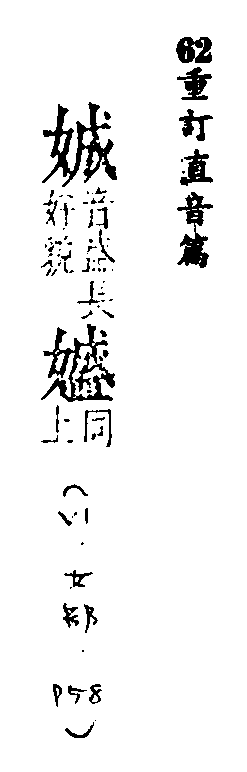 62重訂直音篇
娍音盛長好貌 同上 ( . 女部 . P58 )